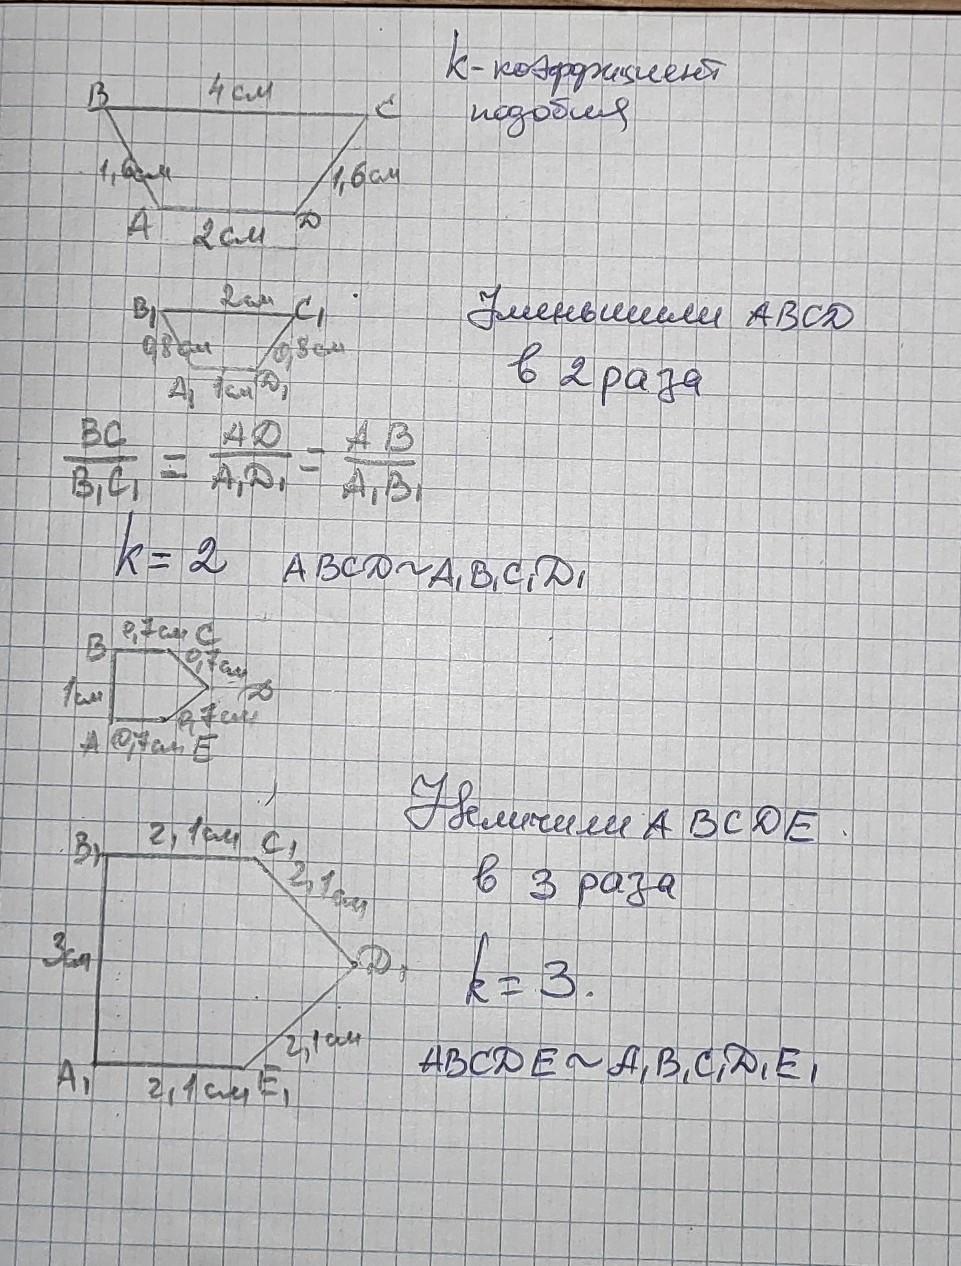 k - коэффициент
подобия
B 4 см C
1,6 см 1,6 см
A 2 см D
B₁ 2 см C₁
0,8 см 0,8 см
A₁ 1 см D₁
Уменьшили ABCD
в 2 раза
BC/B₁C₁ = AD/A₁D₁ = AB/A₁B₁
k = 2 ABCD ~ A₁B₁C₁D₁
B 0,7 см C
0,7 см
1 см D
0,7 см
A 0,7 см E
Увеличили ABCDE
в 3 раза
B₁ 2,1 см C₁
2,1 см
3 см D₁
k = 3.
2,1 см
A₁ 2,1 см E₁
ABCDE ~ A₁B₁C₁D₁E₁